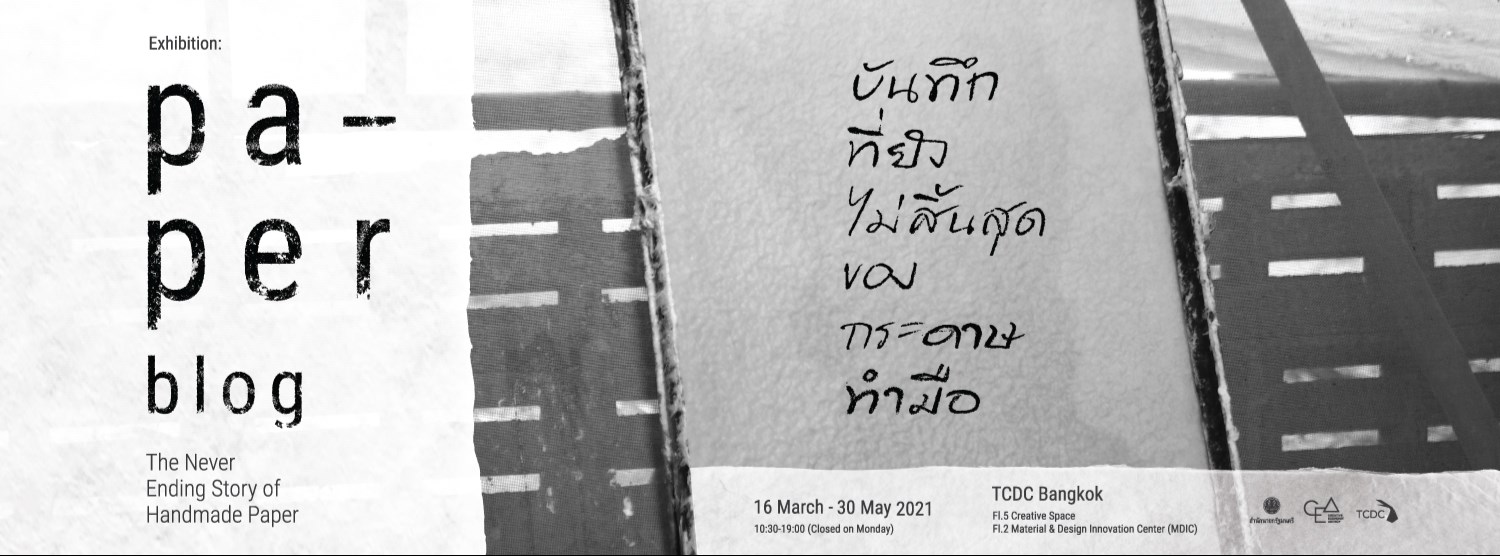 Exhibition:
pa-
per
blog
The Never
Ending Story of
Handmade Paper
บันทึก
ที่ยัง
ไม่สิ้นสุด
ของ
กระดาษ
ทำมือ
16 March - 30 May 2021
10:30-19:00 (Closed on Monday)
TCDC Bangkok
Fl.5 Creative Space
Fl.2 Material & Design Innovation Center (MDIC)
สำนักนายกรัฐมนตรี
CEA
TCDC